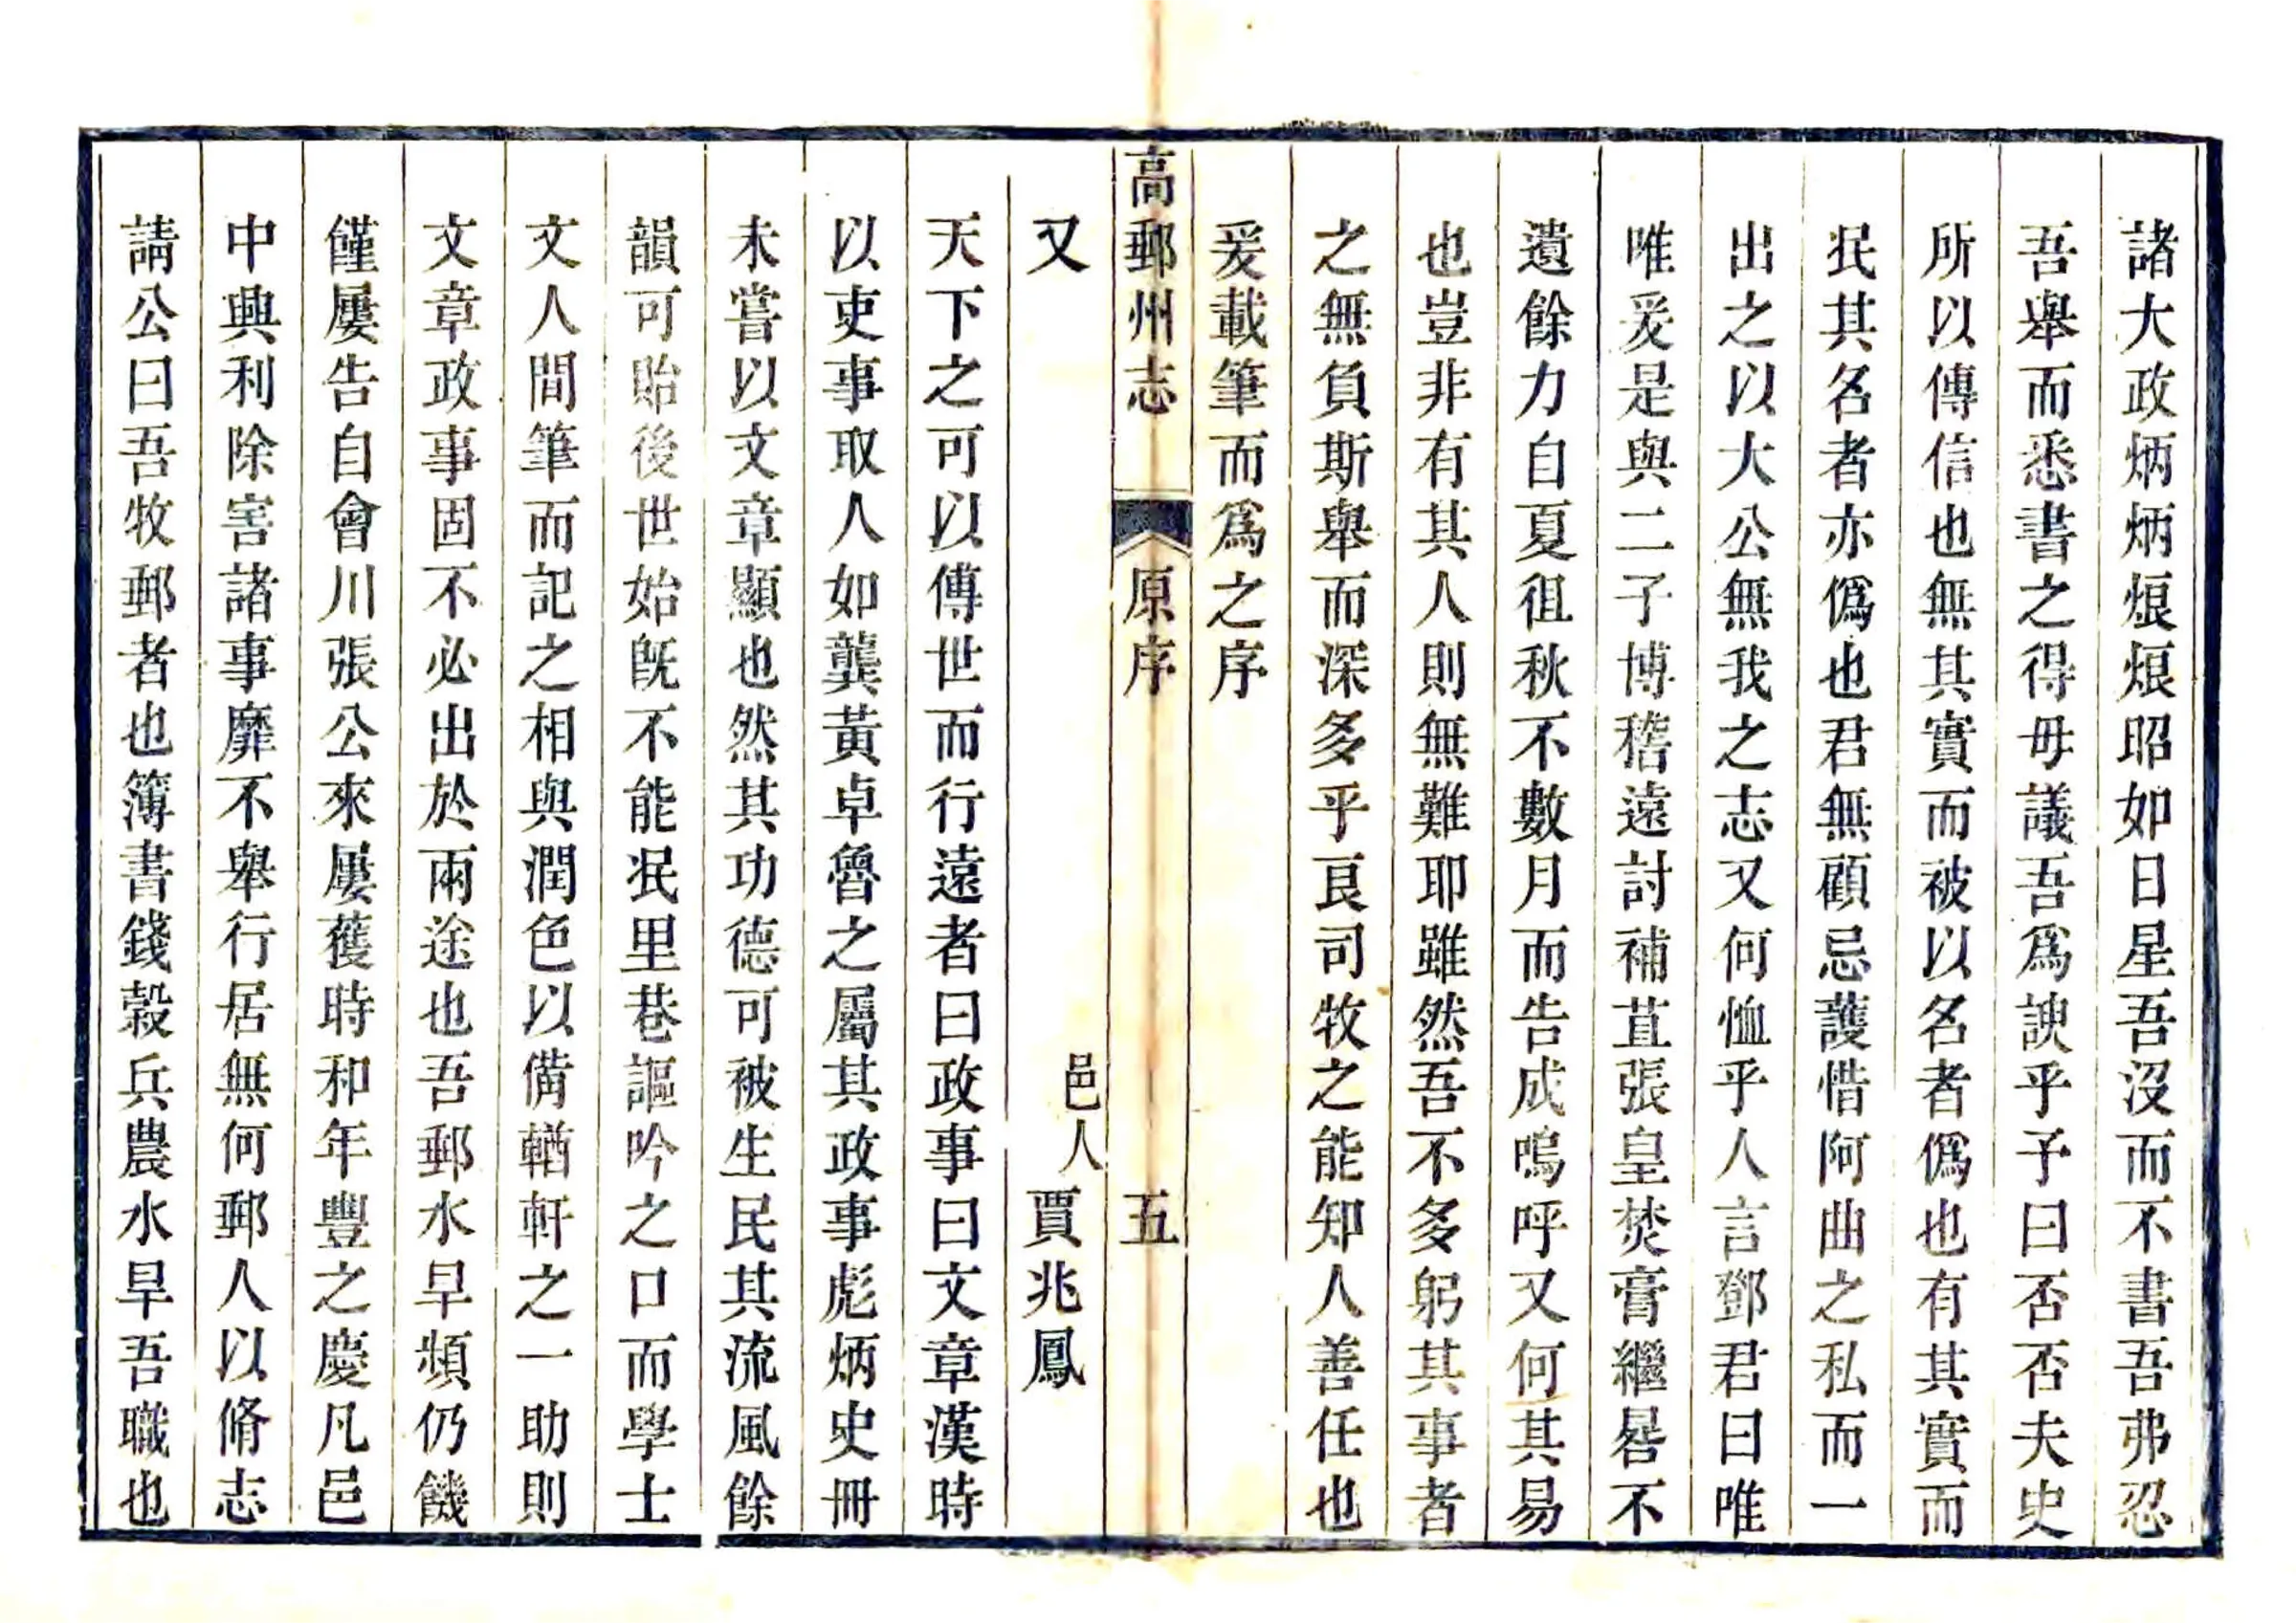 諸大政炳炳烺烺昭如日星吾沒而不書吾弗忍
吾舉而悉書之得毋議吾爲諛乎予曰否否夫史
所以傳信也無其實而被以名者僞也有其實而
民其名者亦僞也君無顧忌護惜阿曲之私而一
出之以大公無我之志又何恤乎人言鄧君曰唯
唯爰是與二子博稽遠討補苴張皇焚膏繼晷不
遺餘力自夏徂秋不數月而告成嗚呼又何其易
也豈非有其人則無難耶雖然吾不多躬其事者
之無負斯舉而深多乎良司牧之能知人善任也
爰載筆而爲之序
高郵州志 原序 五
又 邑人賈兆鳳
天下之可以傳世而行遠者曰政事曰文章漢時
以吏事取人如龔黃卓魯之屬其政事彪炳史冊
未嘗以文章顯也然其功德可被生民其流風餘
韻可貽後世始旣不能泯里巷謳吟之口而學士
文人間筆而記之相與潤色以備輶軒之一助則
文章政事固不必出於兩途也吾郵水旱頻仍饑
饉屢告自會川張公來屢獲時和年豐之慶凡邑
中興利除害諸事靡不舉行居無何郵人以脩志
請公曰吾牧郵者也簿書錢穀兵農水旱吾職也